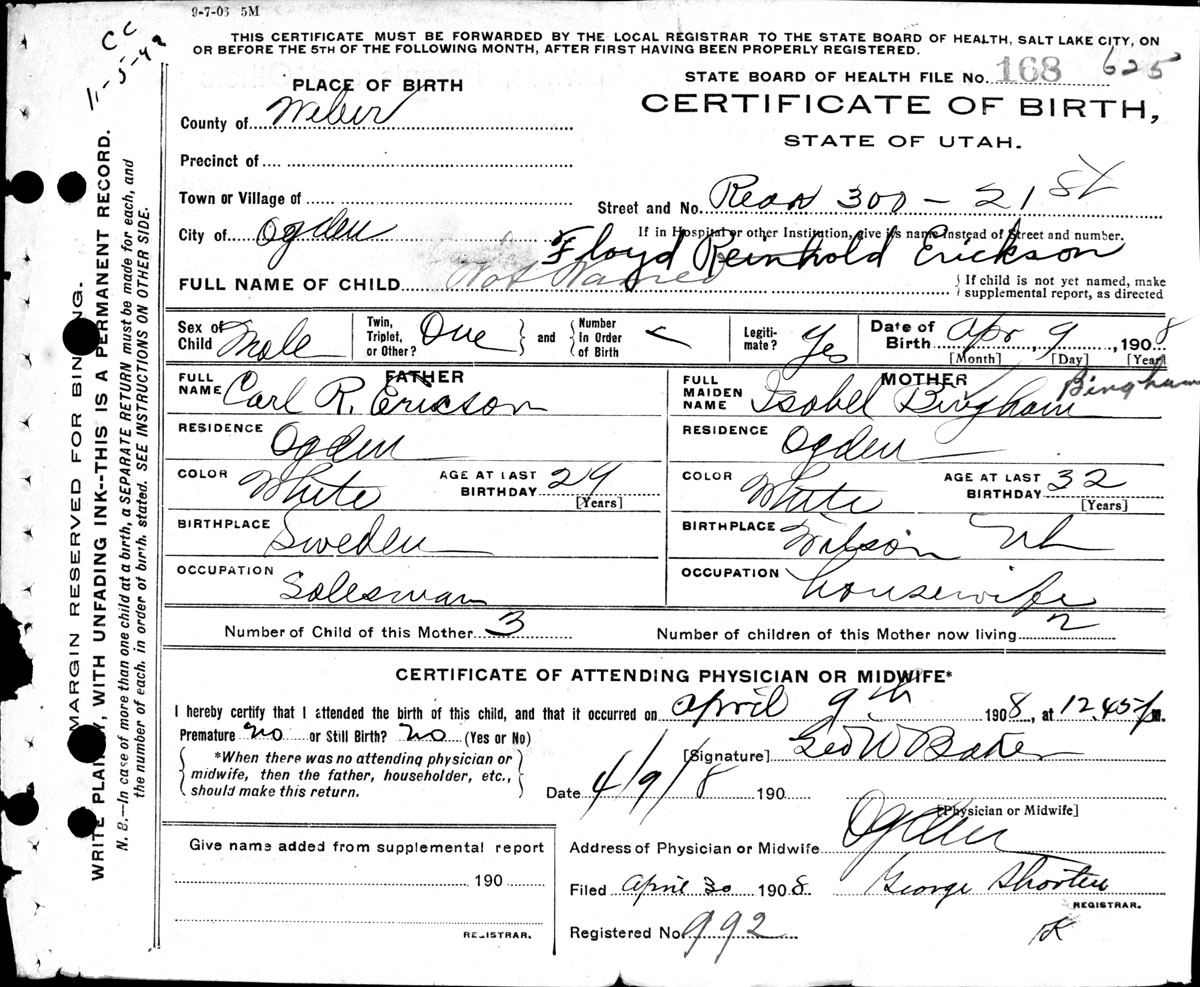 9-7-03 5M
CC
11-5-42
THIS CERTIFICATE MUST BE FORWARDED BY THE LOCAL REGISTRAR TO THE STATE BOARD OF HEALTH, SALT LAKE CITY, ON
OR BEFORE THE 5TH OF THE FOLLOWING MONTH, AFTER FIRST HAVING BEEN PROPERLY REGISTERED.
PLACE OF BIRTH
STATE BOARD OF HEALTH FILE No. 168 625
County of Weber
CERTIFICATE OF BIRTH,
STATE OF UTAH.
Precinct of
Town or Village of
Street and No. Rear 300 - 21 St
City of Ogden
If in Hospital or other Institution, give its name instead of Street and number.
Floyd Reinhold Erickson
FULL NAME OF CHILD Not Named
{ If child is not yet named, make
supplemental report, as directed
Sex of Child Male
Twin, Triplet, or Other? One } and { Number In Order of Birth
Legitimate? Yes
Date of Birth Apr 9, 1908
[Month] [Day] [Year]
FATHER
FULL NAME Carl R. Erickson
RESIDENCE Ogden
COLOR White AGE AT LAST BIRTHDAY 29 [Years]
BIRTHPLACE Sweden
OCCUPATION Salesman
MOTHER
FULL MAIDEN NAME Isobel Bingham Bingham
RESIDENCE Ogden
COLOR White AGE AT LAST BIRTHDAY 32 [Years]
BIRTHPLACE Wilson
OCCUPATION housewife
Number of Child of this Mother 3 Number of children of this Mother now living 2
CERTIFICATE OF ATTENDING PHYSICIAN OR MIDWIFE*
I hereby certify that I attended the birth of this child, and that it occurred on April 9th 1908, at 12.45 P.M.
Premature no or Still Birth? no (Yes or No)
[Signature] Geo W Baker
{ *When there was no attending physician or
midwife, then the father, householder, etc.,
should make this return. }
Date 4/9/8 190
[Physician or Midwife]
Give name added from supplemental report
Address of Physician or Midwife Ogden
190
Filed April 30 1908 George Shorten
REGISTRAR.
REGISTRAR.
Registered No. 992
MARGIN RESERVED FOR BINDING.
WRITE PLAINLY, WITH UNFADING INK--THIS IS A PERMANENT RECORD.
N. B.—In case of more than one child at a birth, a SEPARATE RETURN must be made for each, and
the number of each, in order of birth, stated. SEE INSTRUCTIONS ON OTHER SIDE.